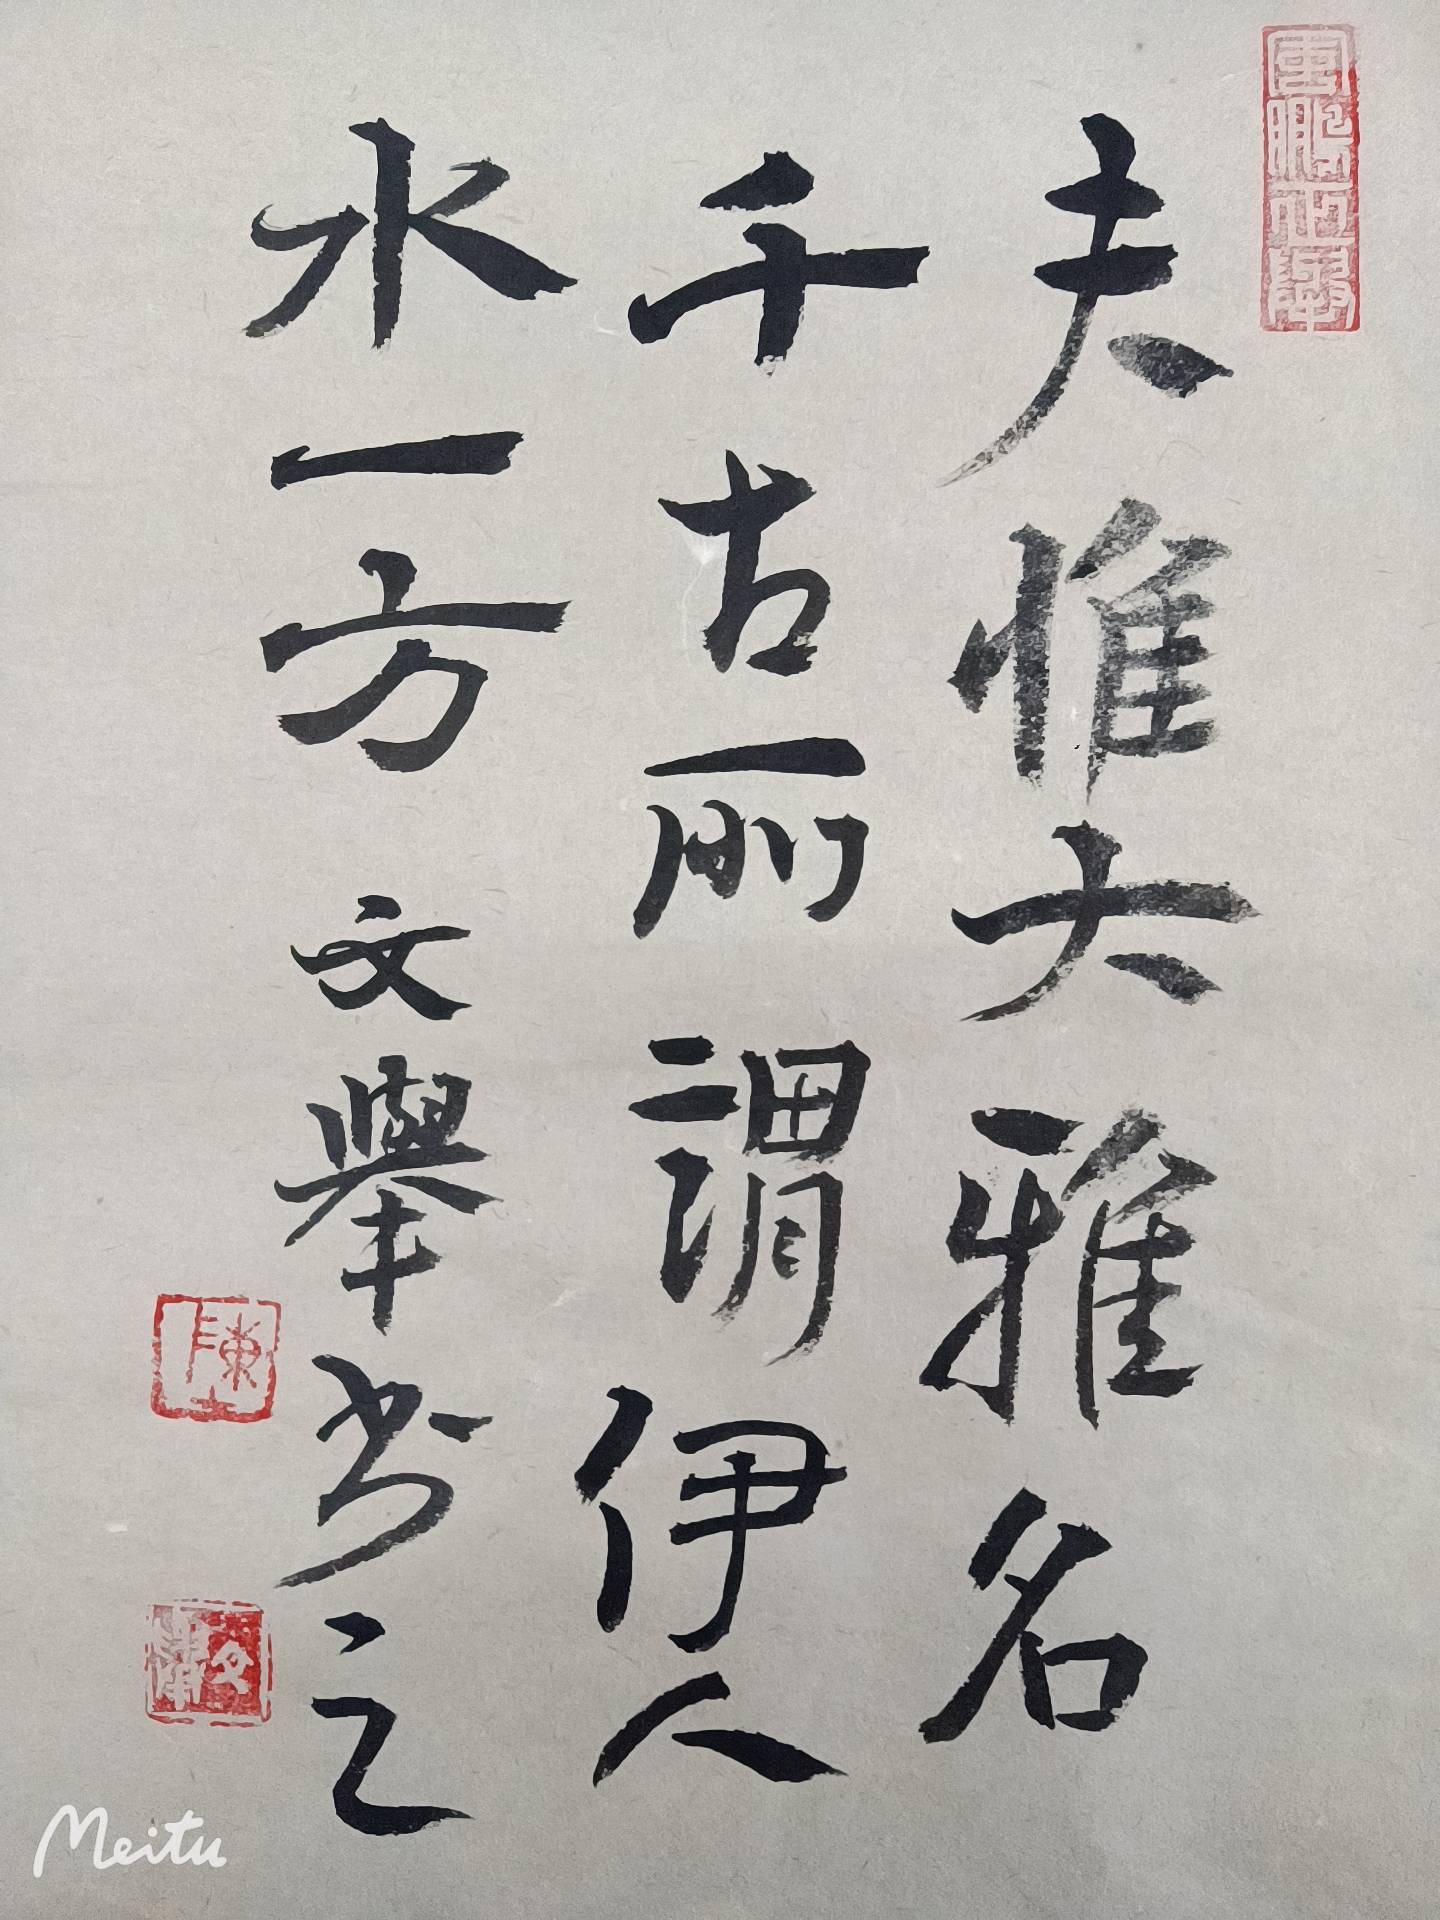 夫惟大雅名
千古所謂伊人
水一方 文舉書之
陳
文舉
Meitu